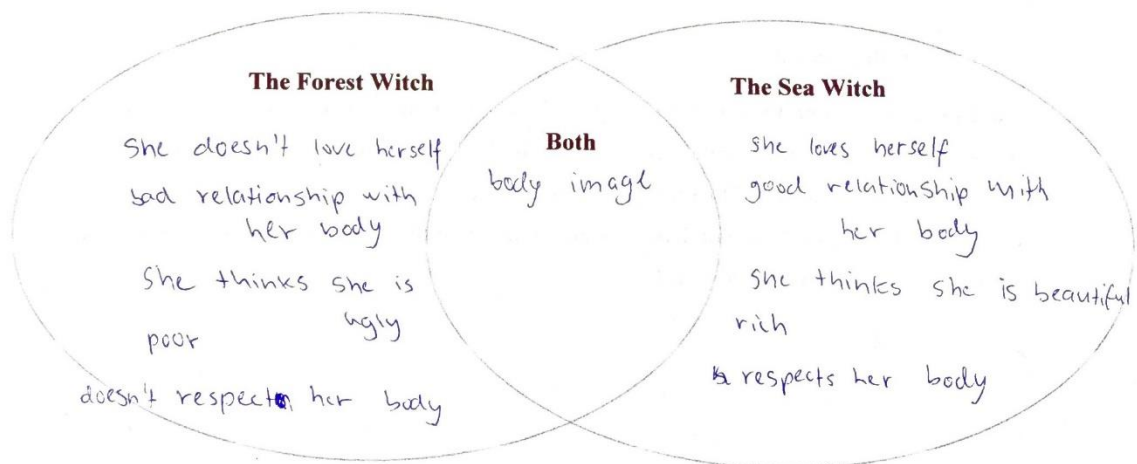 The Forest Witch
She doesn't love herself
bad relationship with
her body
She thinks she is
ugly
poor
doesn't respect her body
Both
body image
The Sea Witch
she loves herself
good relationship with
her body
she thinks she is beautiful
rich
respects her body